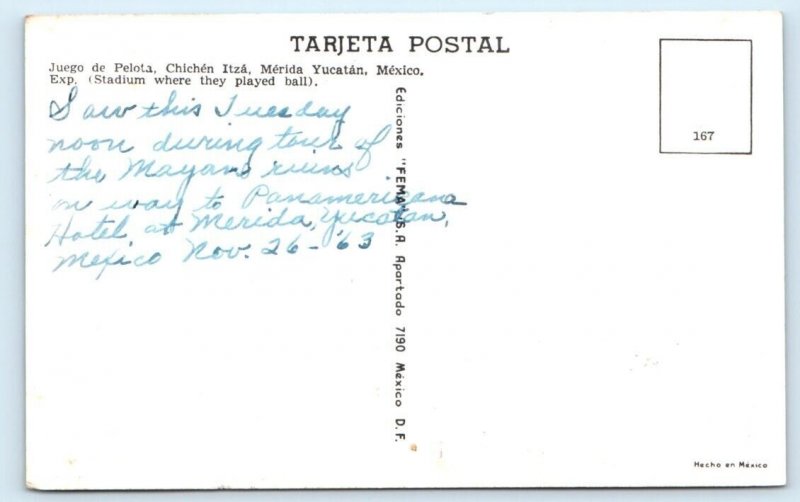 TARJETA POSTAL
Juego de Pelota, Chichén Itzá, Mérida Yucatán, México.
Exp. (Stadium where they played ball).
167
Saw this Tuesday
noon during tour of
the Mayans ruins
on way to Panamericana
Hotel at Merida, Yucatan,
Mexico Nov. 26-'63
Ediciones "FEMA" S.A. Apartado 7190 México D.F.
Hecho en México